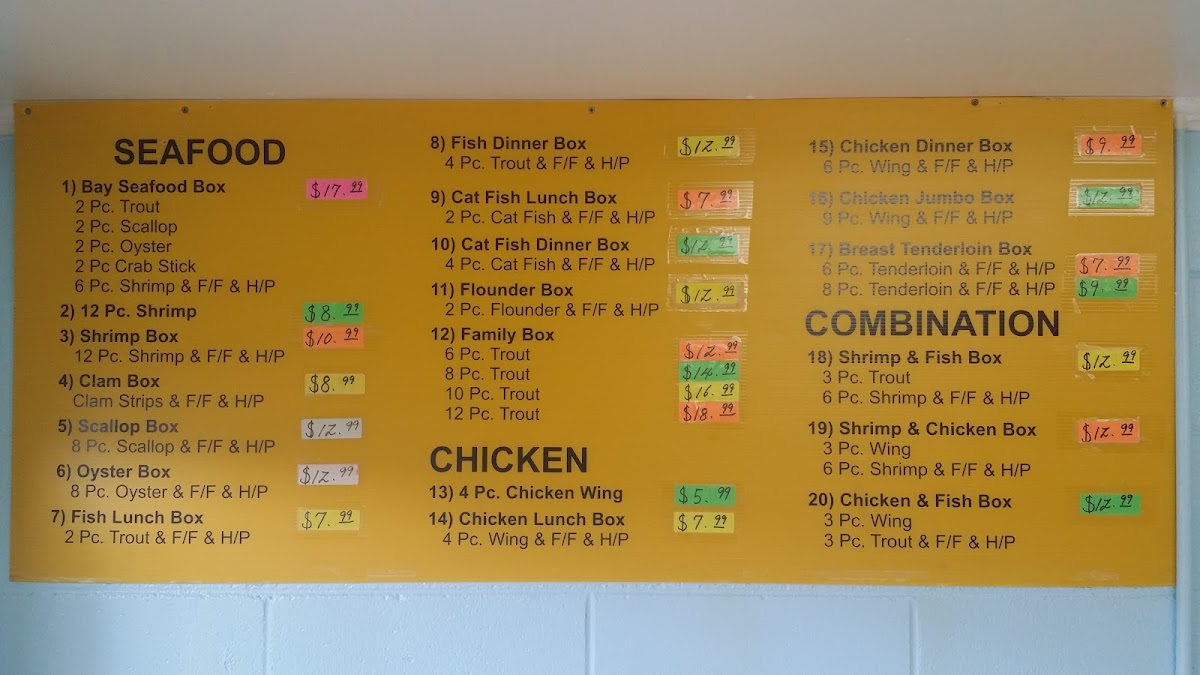 SEAFOOD
1) Bay Seafood Box $17.99
2 Pc. Trout
2 Pc. Scallop
2 Pc. Oyster
2 Pc Crab Stick
6 Pc. Shrimp & F/F & H/P
2) 12 Pc. Shrimp $8.99
3) Shrimp Box $10.99
12 Pc. Shrimp & F/F & H/P
4) Clam Box $8.99
Clam Strips & F/F & H/P
5) Scallop Box $12.99
8 Pc. Scallop & F/F & H/P
6) Oyster Box $12.99
8 Pc. Oyster & F/F & H/P
7) Fish Lunch Box $7.99
2 Pc. Trout & F/F & H/P
8) Fish Dinner Box $12.99
4 Pc. Trout & F/F & H/P
9) Cat Fish Lunch Box $7.99
2 Pc. Cat Fish & F/F & H/P
10) Cat Fish Dinner Box $12.99
4 Pc. Cat Fish & F/F & H/P
11) Flounder Box $12.99
2 Pc. Flounder & F/F & H/P
12) Family Box
6 Pc. Trout $12.99
8 Pc. Trout $14.99
10 Pc. Trout $16.99
12 Pc. Trout $18.99
CHICKEN
13) 4 Pc. Chicken Wing $5.99
14) Chicken Lunch Box $7.99
4 Pc. Wing & F/F & H/P
15) Chicken Dinner Box $9.99
6 Pc. Wing & F/F & H/P
16) Chicken Jumbo Box $12.99
9 Pc. Wing & F/F & H/P
17) Breast Tenderloin Box
6 Pc. Tenderloin & F/F & H/P $7.99
8 Pc. Tenderloin & F/F & H/P $9.99
COMBINATION
18) Shrimp & Fish Box $12.99
3 Pc. Trout
6 Pc. Shrimp & F/F & H/P
19) Shrimp & Chicken Box $12.99
3 Pc. Wing
6 Pc. Shrimp & F/F & H/P
20) Chicken & Fish Box $12.99
3 Pc. Wing
3 Pc. Trout & F/F & H/P